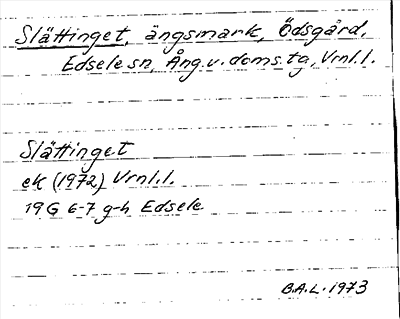 Slättinget, ängsmark, Ödsgård,
Edsele sn, Ång.v.doms.tg, Vrnl.l.
Slättinget
ek (1972) Vrnl.l.
19G 6-7 g-h Edsele
B.A.L. 1973